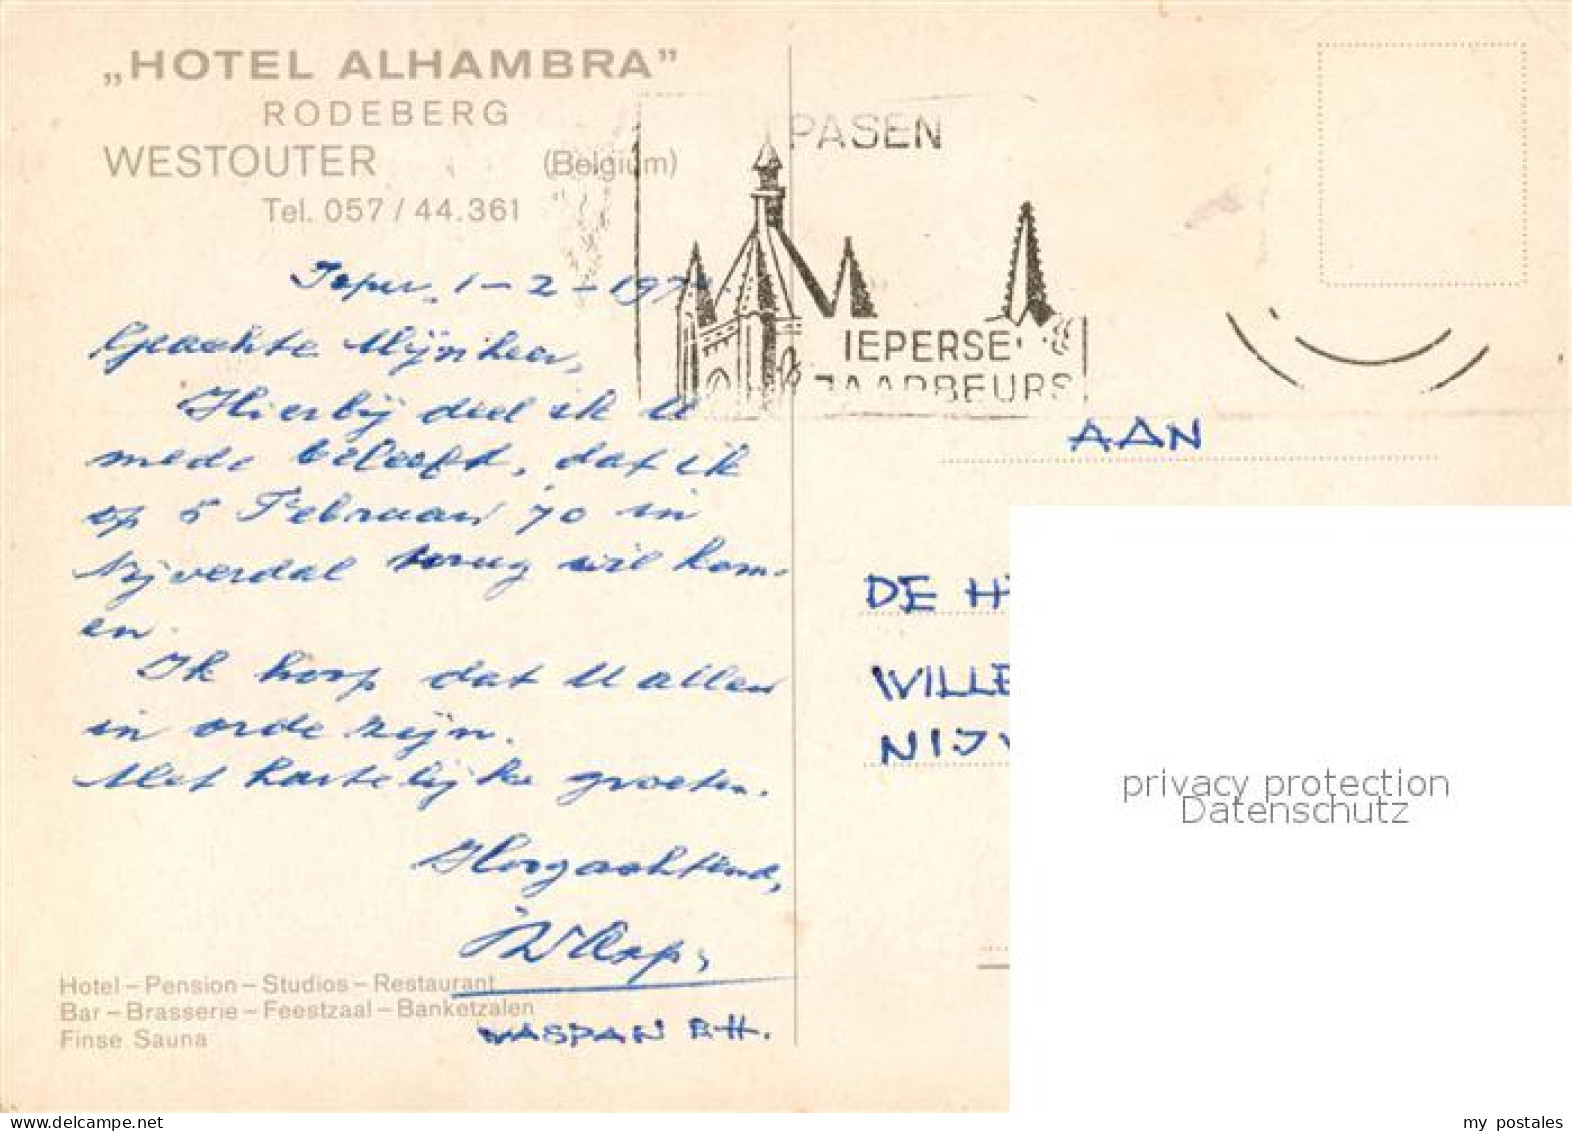 „HOTEL ALHAMBRA”
RODEBERG
WESTOUTER (Belgium)
Tel. 057 / 44.361
PASEN
IEPERSE
JAARBEURS
Ieper, 1-2-197
Geachte Mijnheer,
Hierbij deel ik U
mede beleefd, dat ik
op 5 Februari 70 in
Nijverdal terug wil kom-
en.
Ik hoop dat U allen
in orde zijn.
Met hartelijke groeten.
Hoogachtend,
WASPAN B.H.
Hotel – Pension – Studios – Restaurant
Bar – Brasserie – Feestzaal – Banketzalen
Finse Sauna
AAN
DE H
WILLE
NIJV
privacy protection
Datenschutz
my postales
www.delcampe.net